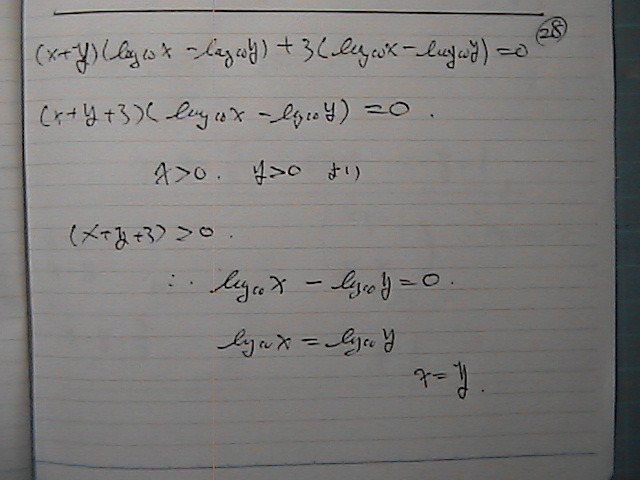 ㉘
(x+y)(log₁₀x − log₁₀y) + 3(log₁₀x − log₁₀y) = 0
(x+y+3)(log₁₀x − log₁₀y) = 0.
x>0. y>0 より
(x+y+3)>0.
∴ log₁₀x − log₁₀y = 0.
log₁₀x = log₁₀y
x=y.